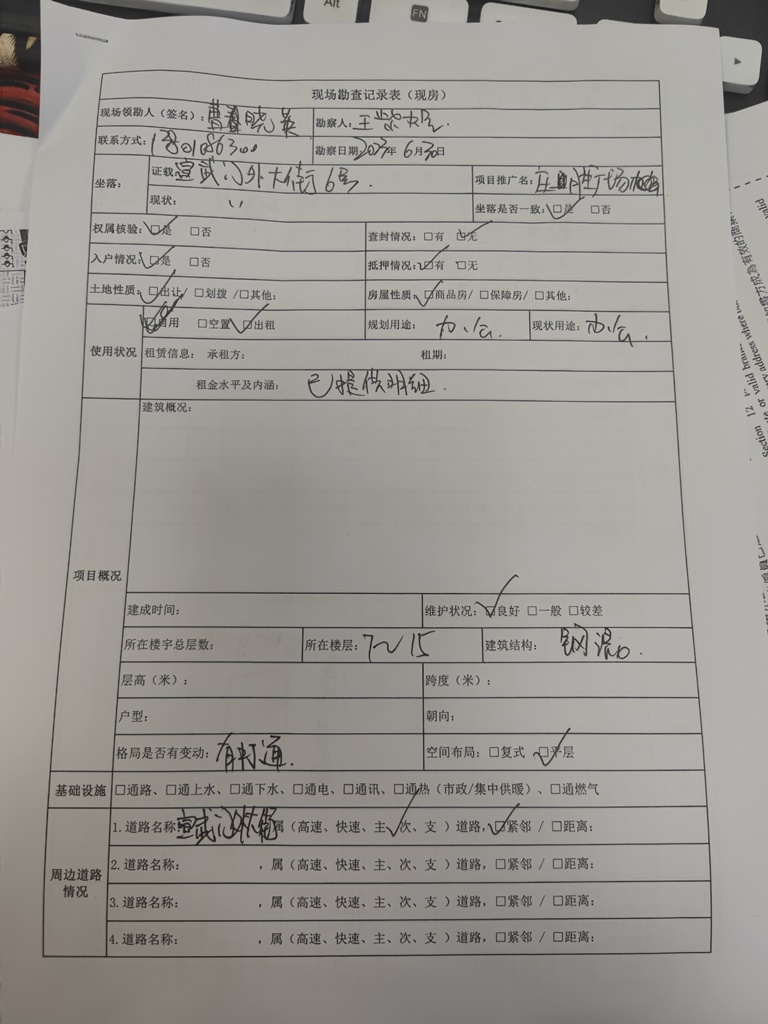 Alt
FN
现场勘查记录表（现房）
现场领勘人（签名）：曹春晓 勘察人：王紫
联系方式： 勘察日期：2023年 6月30日
坐落： 证载：宣武门外大街6号. 项目推广名：庄胜广场
现状： 〃 坐落是否一致：☑是 □否
权属核验：☑是 □否 查封情况：□有 ☑无
入户情况：☑是 □否 抵押情况：☑有 □无
土地性质：☑出让/□划拨 /□其他： 房屋性质：☑商品房/□保障房/□其他：
使用状况 自用 □空置 ☑出租 规划用途： 办公. 现状用途：办公.
租赁信息： 承租方： 租期：
租金水平及内涵： 已提供明细.
项目概况 建筑概况：
建成时间： 维护状况：☑良好 □一般 □较差
所在楼宇总层数： 所在楼层：7~15 建筑结构： 钢混.
层高（米）： 跨度（米）：
户型： 朝向：
格局是否有变动：有打通. 空间布局：□复式 ☑平层
基础设施 □通路、□通上水、□通下水、□通电、□通讯、□通热（市政/集中供暖）、□通燃气
周边道路情况 1.道路名称：宣武门外大街，属（高速、快速、主✓次、支 ）道路，☑紧邻 / □距离：
2.道路名称： ，属（高速、快速、主、次、支 ）道路，□紧邻 / □距离：
3.道路名称： ，属（高速、快速、主、次、支 ）道路，□紧邻 / □距离：
4.道路名称： ，属（高速、快速、主、次、支 ）道路，□紧邻 / □距离：